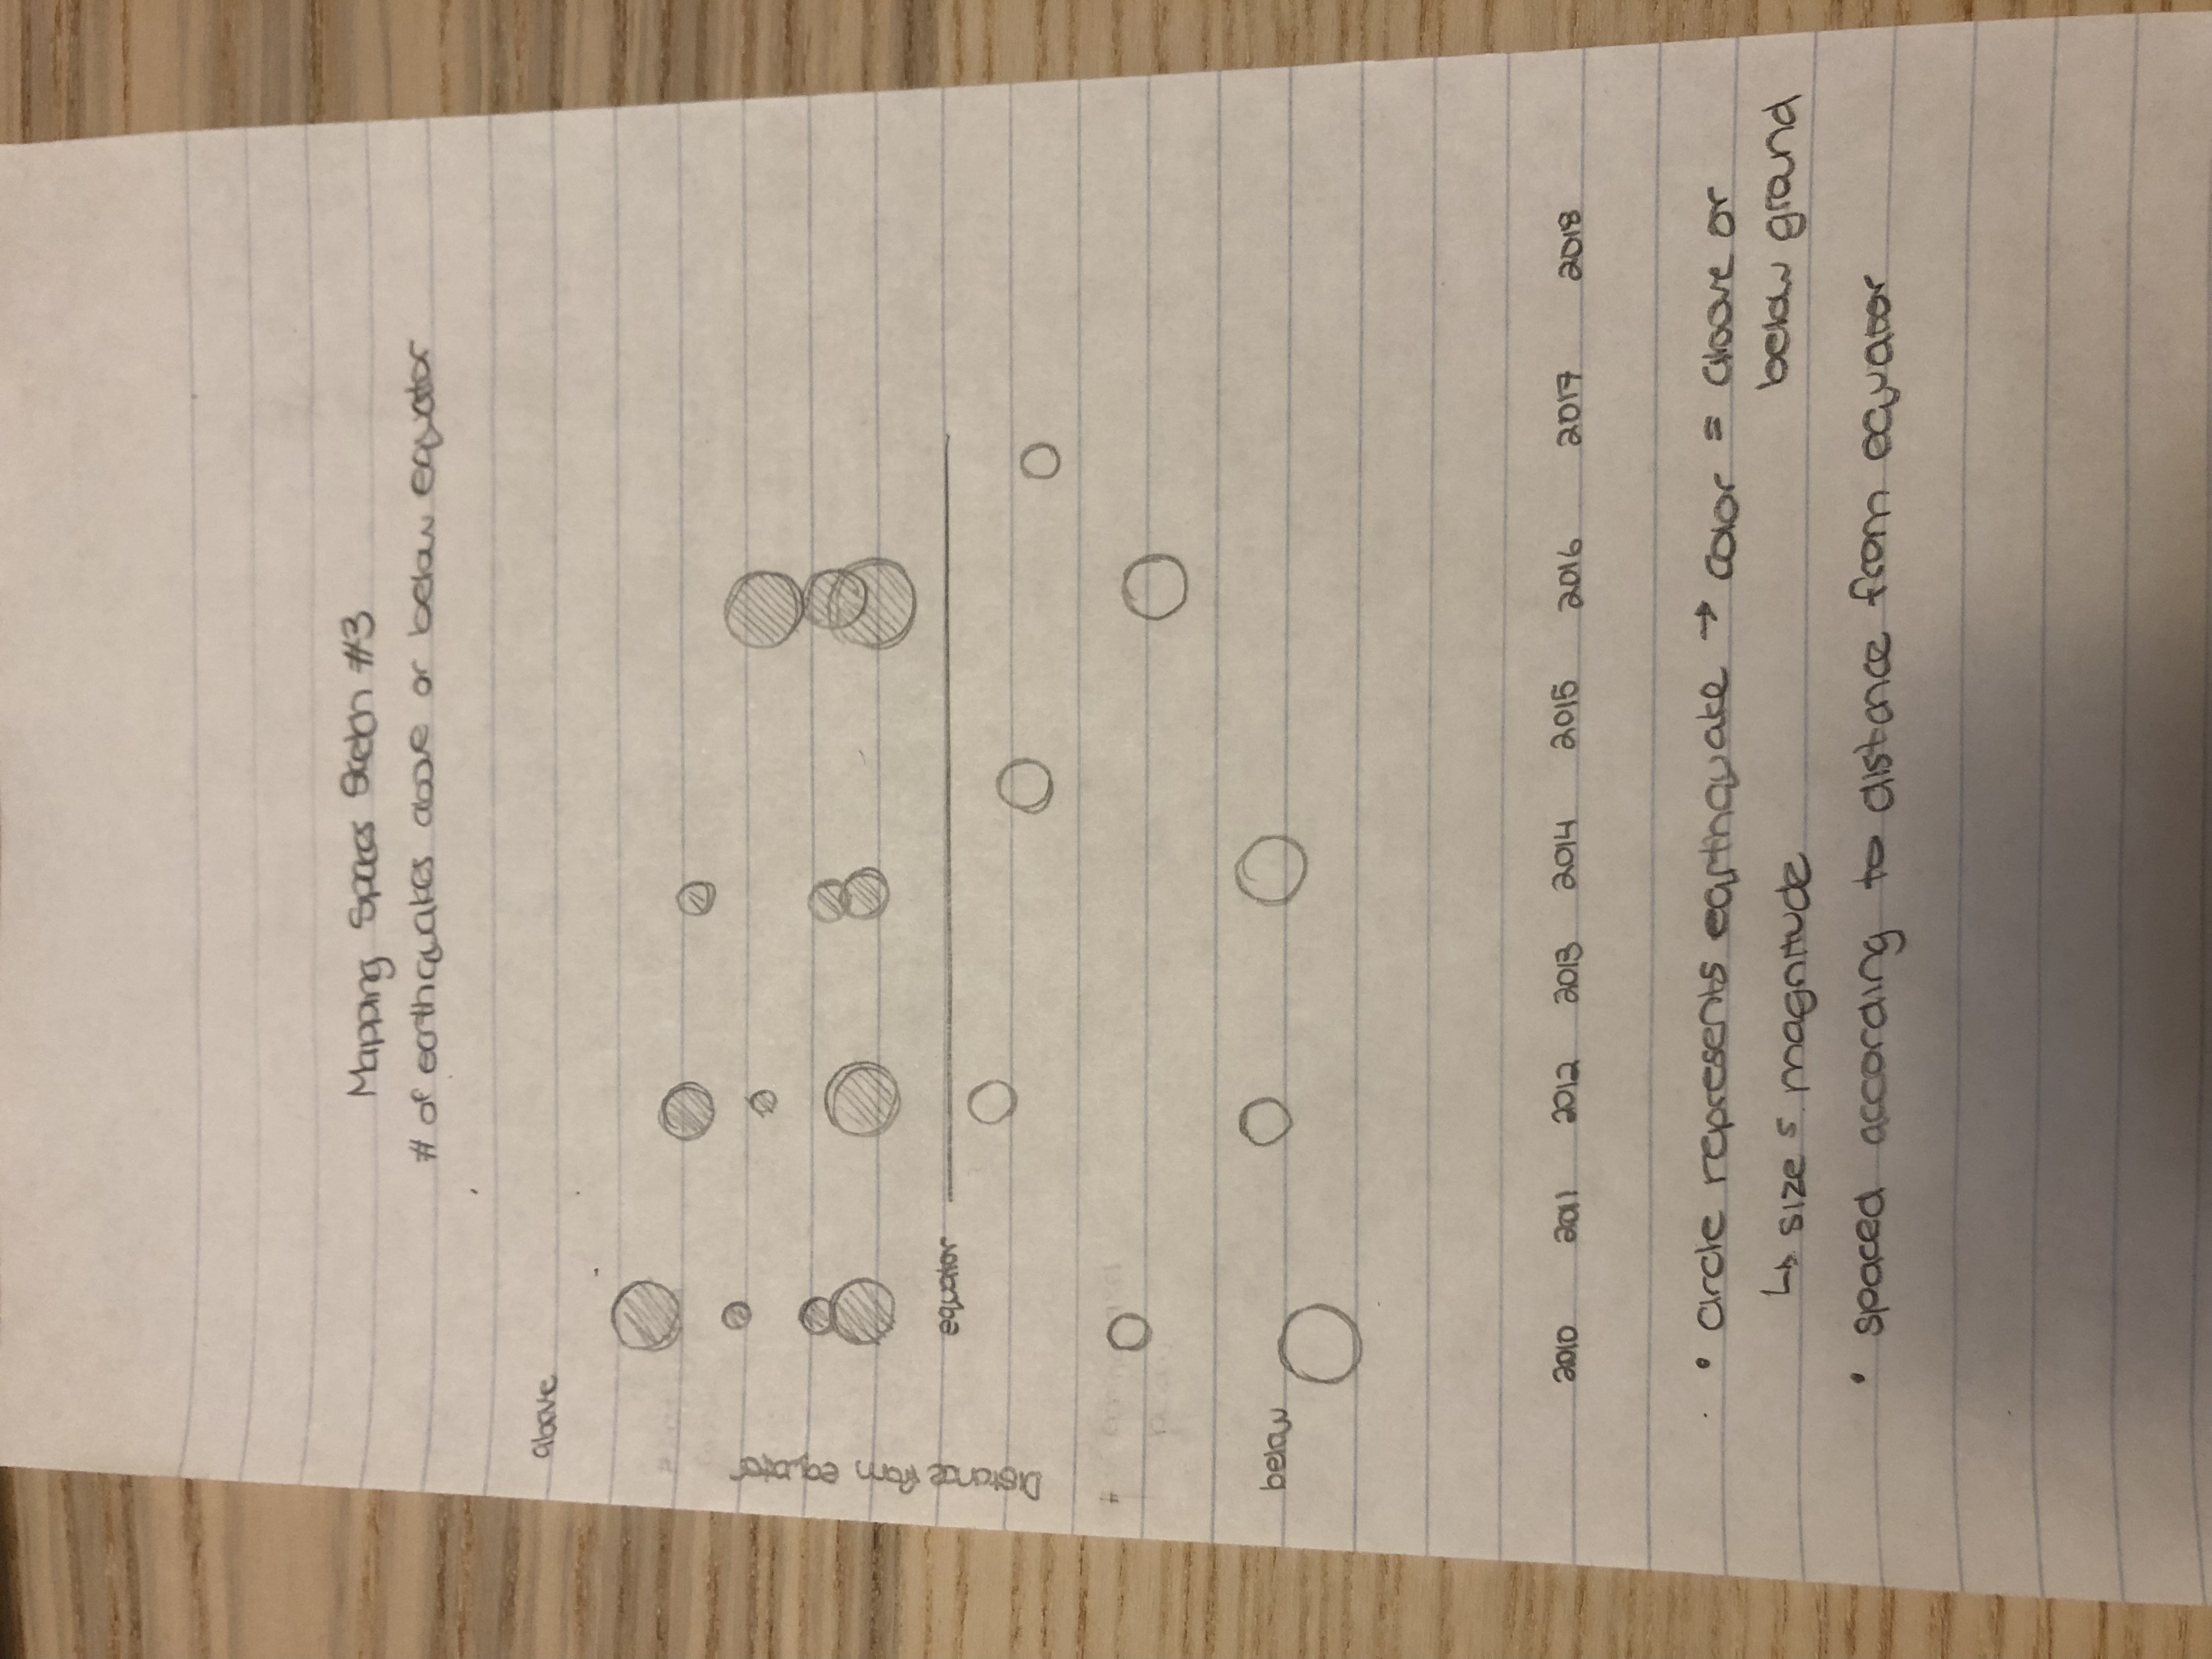 Mapping Spaces Sketch #3
# of earthquakes above or below equator
above
Distance from equator
equator
below
2010 2011 2012 2013 2014 2015 2016 2017 2018
• circle represents earthquake → color = above or
below ground
↳ size = magnitude
• spaced according to distance from equator